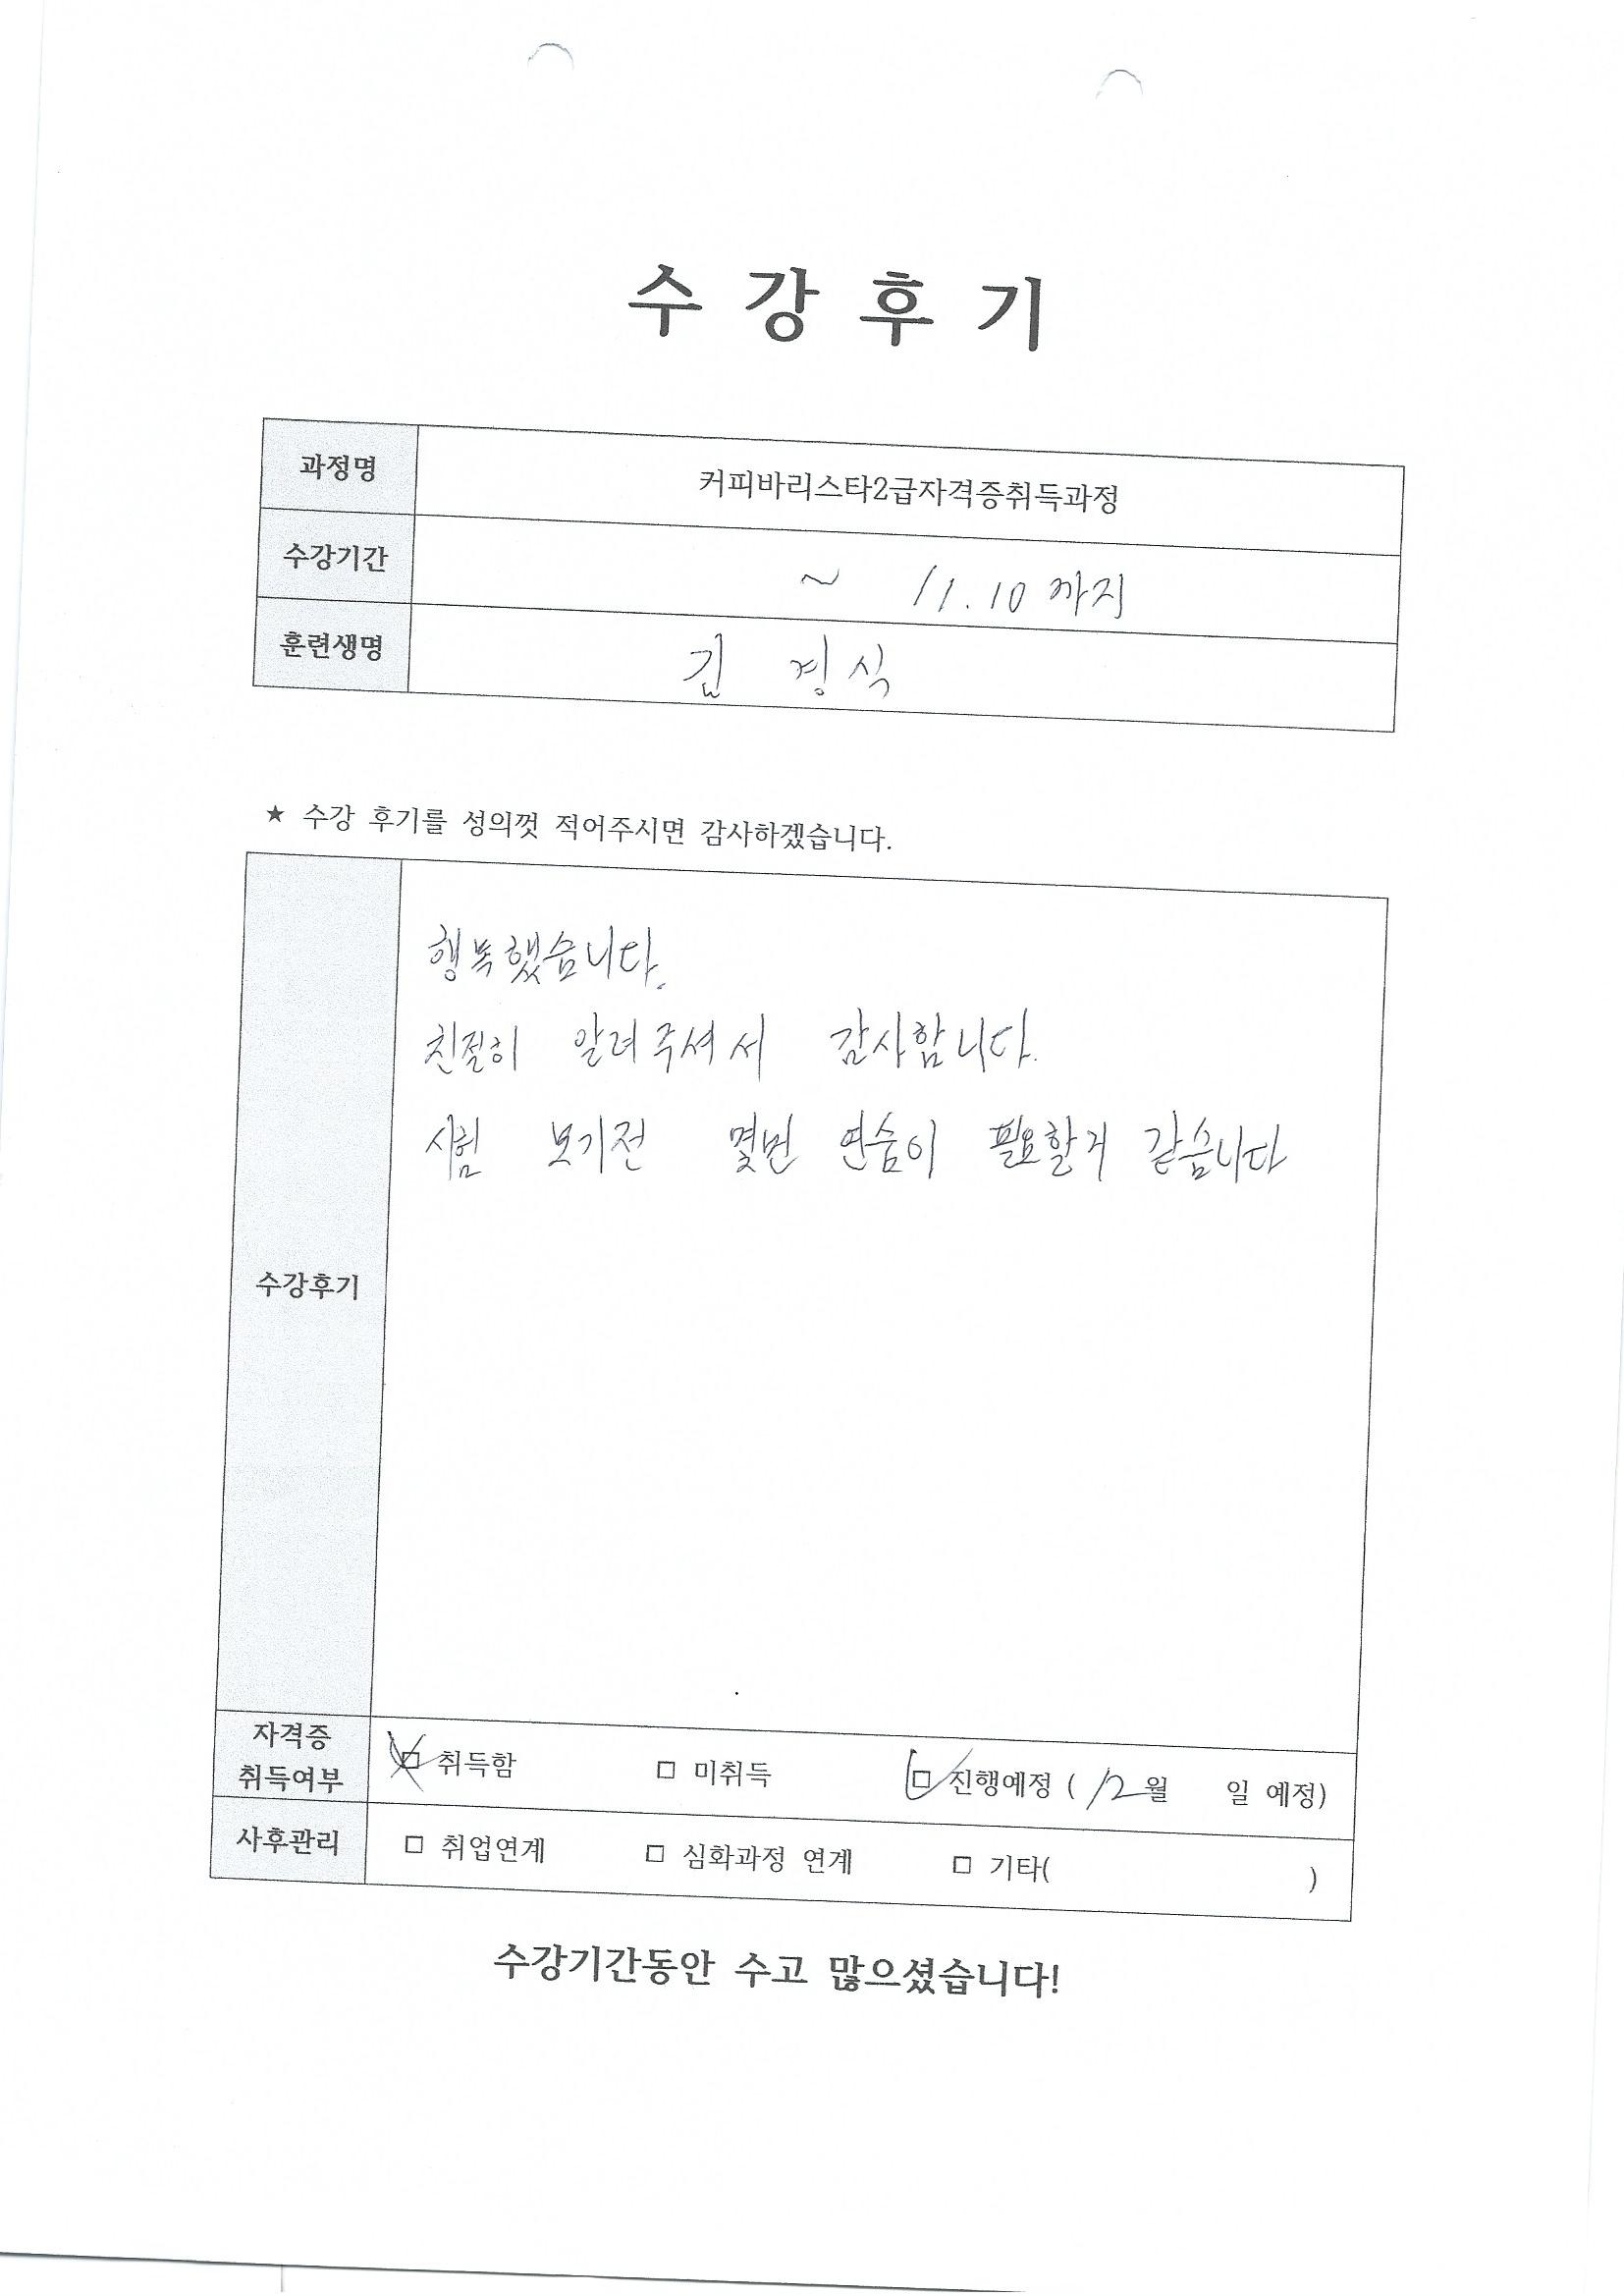 수강후기
과정명 커피바리스타2급자격증취득과정
수강기간 ~ 11.10 까지
훈련생명 김 경식
★ 수강 후기를 성의껏 적어주시면 감사하겠습니다.
행복했습니다.
친절히 알려주셔서 감사합니다.
시험 보기전 몇번 연습이 필요할거 같습니다
수강후기
자격증
취득여부 □ 취득함 □ 미취득 □ 진행예정 ( 12월 일 예정)
사후관리 □ 취업연계 □ 심화과정 연계 □ 기타( )
수강기간동안 수고 많으셨습니다!